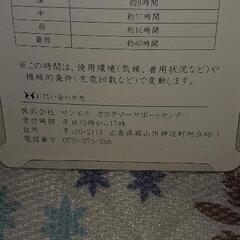 約8時間
中 約11時間
弱 約16時間
最弱 約40時間
※この時間は、使用環境(気候、着用状況など)や
機械的条件(充電回数など)で変動します。
お問い合わせ先
株式会社 サンエス カスタマーサポートセンター
受付時間 平日10時から17時
住所 〒720-2113 広島県福山市神辺町旭丘46-1
電話番号 0570-075-566